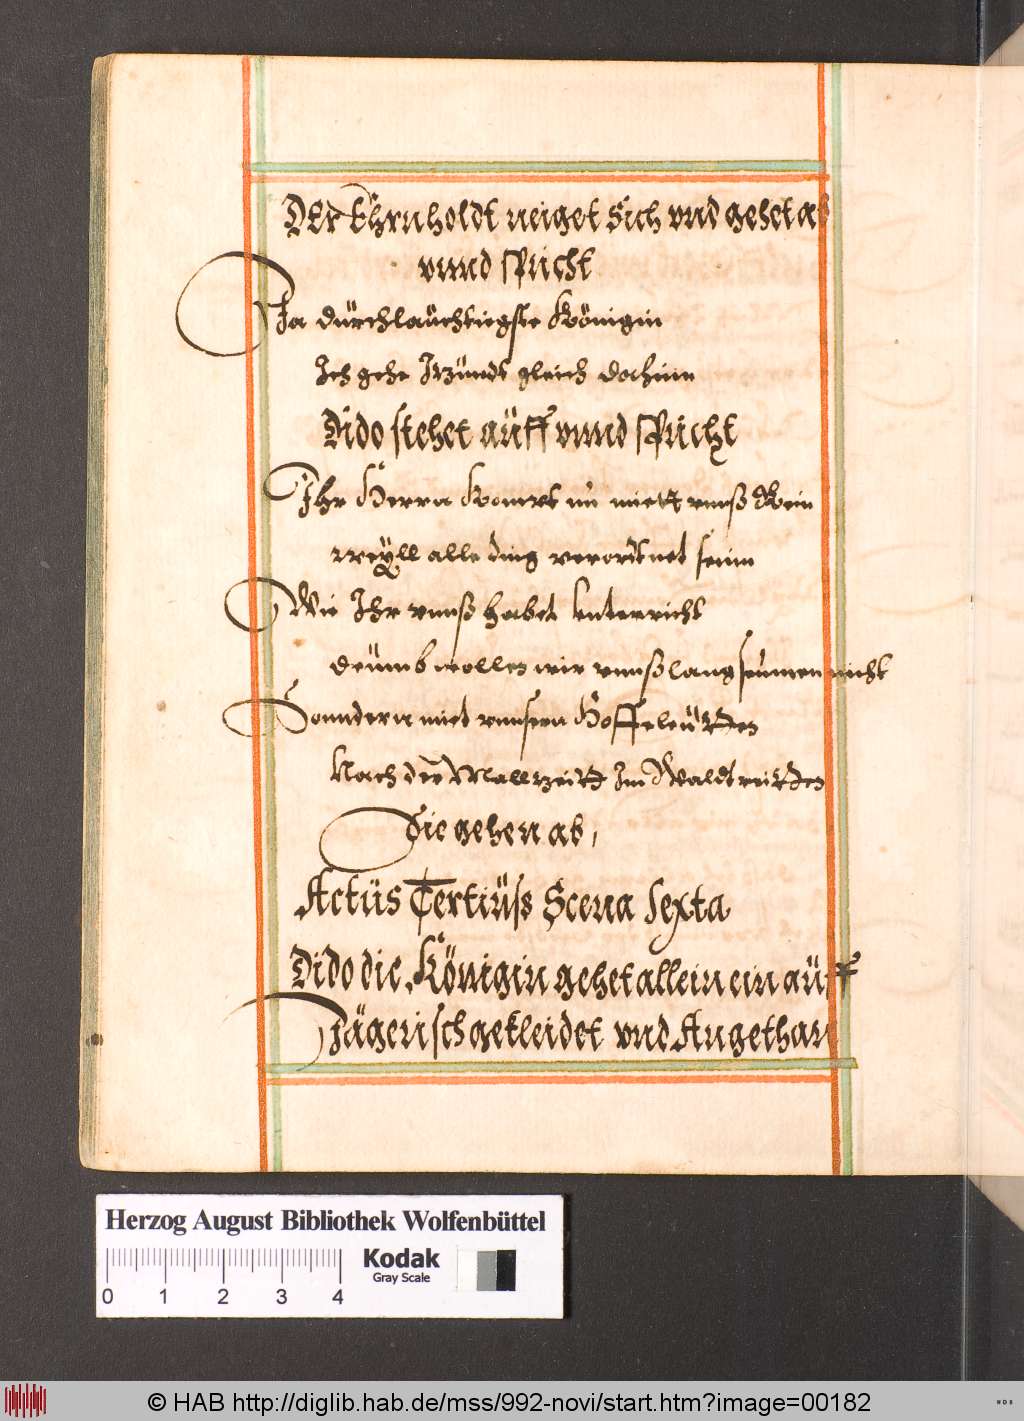 DEr Ehrnholdt neiget sich vnd gehet ab
vnnd spricht
Ja dürchlaüchtiegste Königin
Ich gehe Itzündt gleich dochinn
Dido stehet aüff vnnd spricht
Ihr Herrn kompt nu miett vnnß Rein
weÿll alle ding verordtnet seinn
Wie Ihr vnnß habet bnterricht
deümb wollen wir vnnß lang seumen nicht
Sonndern miet vnnsern Hoffeleütten
Nach der Mallzeitt Im Waldt reitten
Sie gehen ab,
Actüs Tertiüß Scena Sexta
Dido die Königin gehet allein ein aüff
Jägerisch gekleidet vnd Angethan
Herzog August Bibliothek Wolfenbüttel
Kodak
Gray Scale
0 1 2 3 4
© HAB http://diglib.hab.de/mss/992-novi/start.htm?image=00182